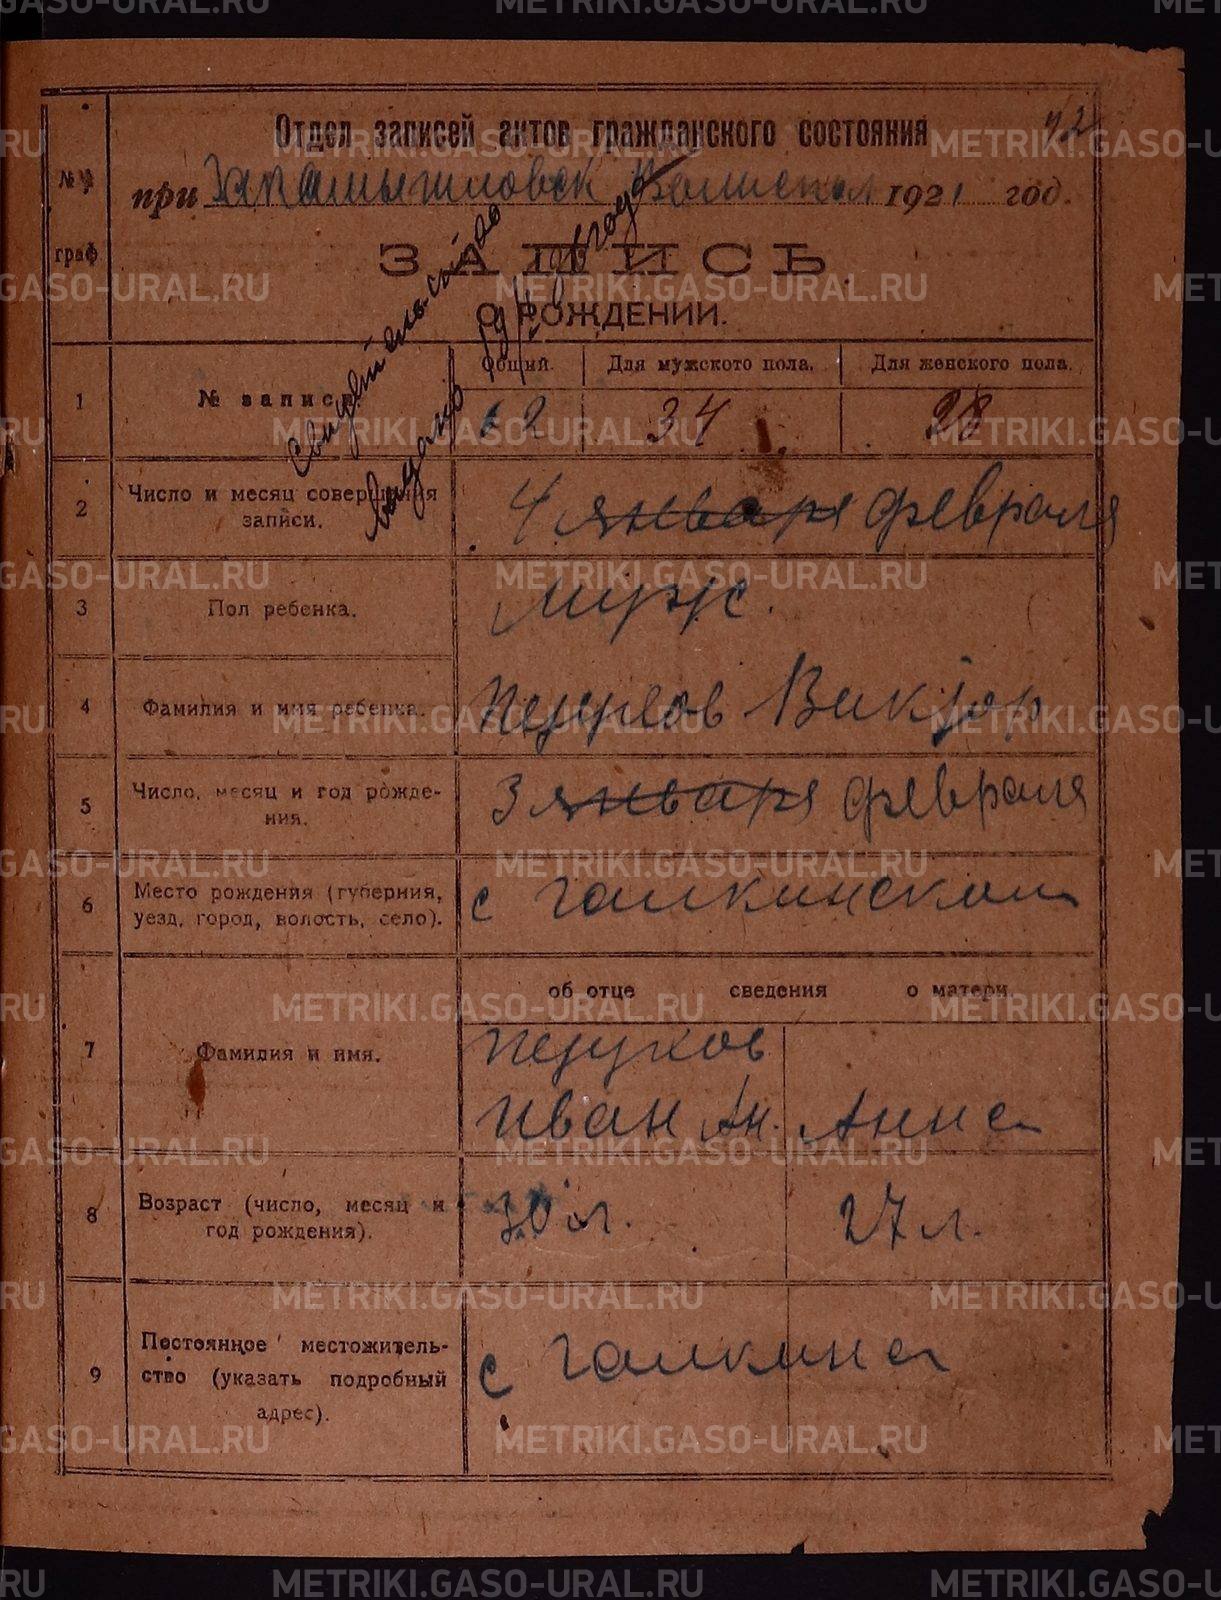 42
Отдел записей актов гражданского состояния
при Закамышловск Волиспол 1921 год.
№№
граф
ЗАПИСЬ
О РОЖДЕНИИ.
свидетельство
выдано
года
Общий. Для мужского пола. Для женского пола.
1 № записи 34 28
2 Число и месяц совершения
записи.
4 января февраля
3 Пол ребенка. Муж.
4 Фамилия и имя ребенка. Виктор
5 Число, месяц и год рожде-
ния.
3 января февраля
6 Место рождения (губерния,
уезд, город, волость, село).
с Галкинском
об отце сведения о матери
7 Фамилия и имя.
Иван Ан. Анна
8 Возраст (число, месяц и
год рождения).
30 л. 27 л.
9 Постоянное местожитель-
ство (указать подробный
адрес).
с Галкина
METRIKI.GASO-URAL.RU